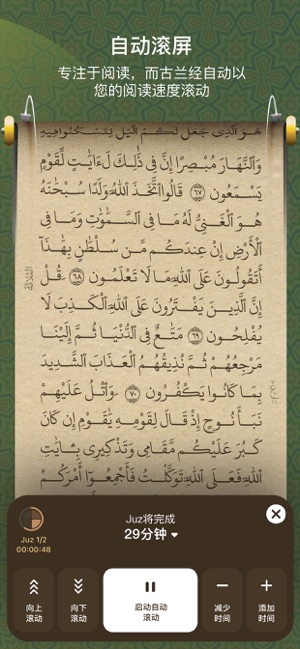 自动滚屏
专注于阅读，而古兰经自动以
您的阅读速度滚动
هُوَ ٱلَّذِى جَعَلَ لَكُمُ ٱلَّيْلَ لِتَسْكُنُوا۟ فِيهِ
وَٱلنَّهَارَ مُبْصِرًا إِنَّ فِى ذَٰلِكَ لَـَٔايَٰتٍ لِّقَوْمٍ
يَسْمَعُونَ ٦٧ قَالُوا۟ ٱتَّخَذَ ٱللَّهُ وَلَدًا سُبْحَٰنَهُۥ
هُوَ ٱلْغَنِىُّ لَهُۥ مَا فِى ٱلسَّمَٰوَٰتِ وَمَا فِى
ٱلْأَرْضِ إِنْ عِندَكُم مِّن سُلْطَٰنٍۭ بِهَٰذَآ
أَتَقُولُونَ عَلَى ٱللَّهِ مَا لَا تَعْلَمُونَ ٦٨ قُلْ
إِنَّ ٱلَّذِينَ يَفْتَرُونَ عَلَى ٱللَّهِ ٱلْكَذِبَ لَا
يُفْلِحُونَ ٦٩ مَتَٰعٌ فِى ٱلدُّنْيَا ثُمَّ إِلَيْنَا
مَرْجِعُهُمْ ثُمَّ نُذِيقُهُمُ ٱلْعَذَابَ ٱلشَّدِيدَ
بِمَا كَانُوا۟ يَكْفُرُونَ ٧٠ وَٱتْلُ عَلَيْهِمْ
نَبَأَ نُوحٍ إِذْ قَالَ لِقَوْمِهِۦ يَٰقَوْمِ إِن كَانَ
كَبُرَ عَلَيْكُم مَّقَامِى وَتَذْكِيرِى بِـَٔايَٰتِ
ٱللَّهِ فَعَلَى ٱللَّهِ تَوَكَّلْتُ فَأَجْمِعُوٓا۟ أَمْرَكُمْ
Juz 1/2
00:00:48
Juz将完成
29分钟
向上
滚动
向下
滚动
启动自动
滚动
减少
时间
添加
时间